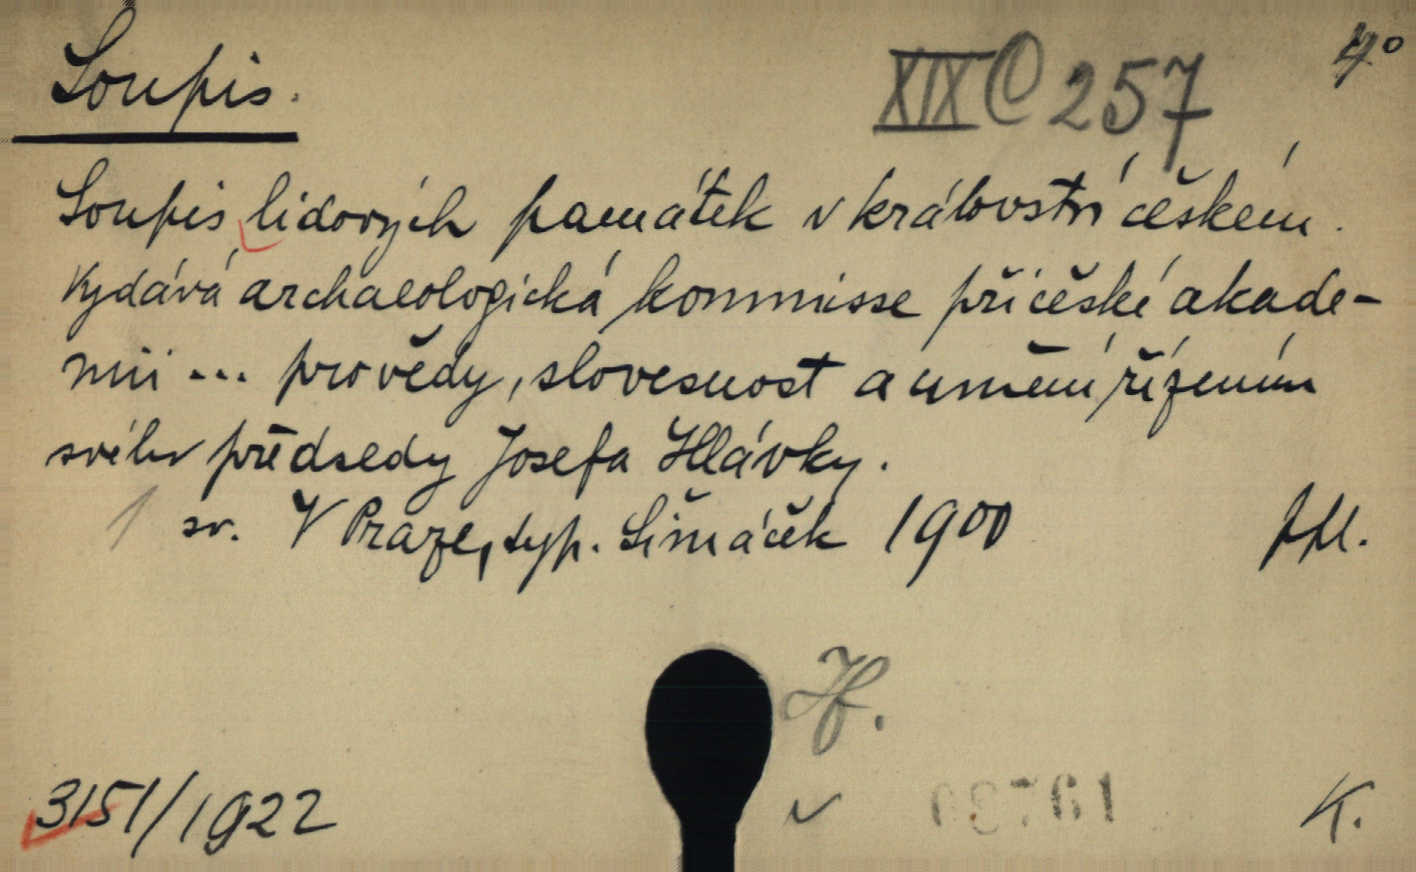 Soupis. XIX C 257 4°
Soupis lidových památek v království českém.
Vydává archaeologická kommisse při české akade-
mii ... pro vědy, slovesnost a umění řízením
svého předsedy Josefa Hlávky.
1 sv. V Praze, typ. Šimáček 1900 ppl.
Hf.
3151/1922 K.